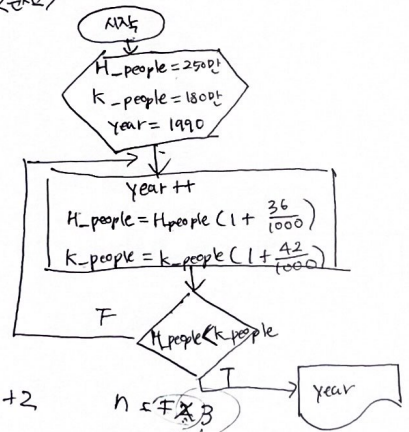 시작
H_people=250만
K_people=180만
year=1990
year++
H_people=Hpeople(1+ 36/1000)
K_people=k_people(1+ 42/1000)
F
H_people<k_people
T
year
+2